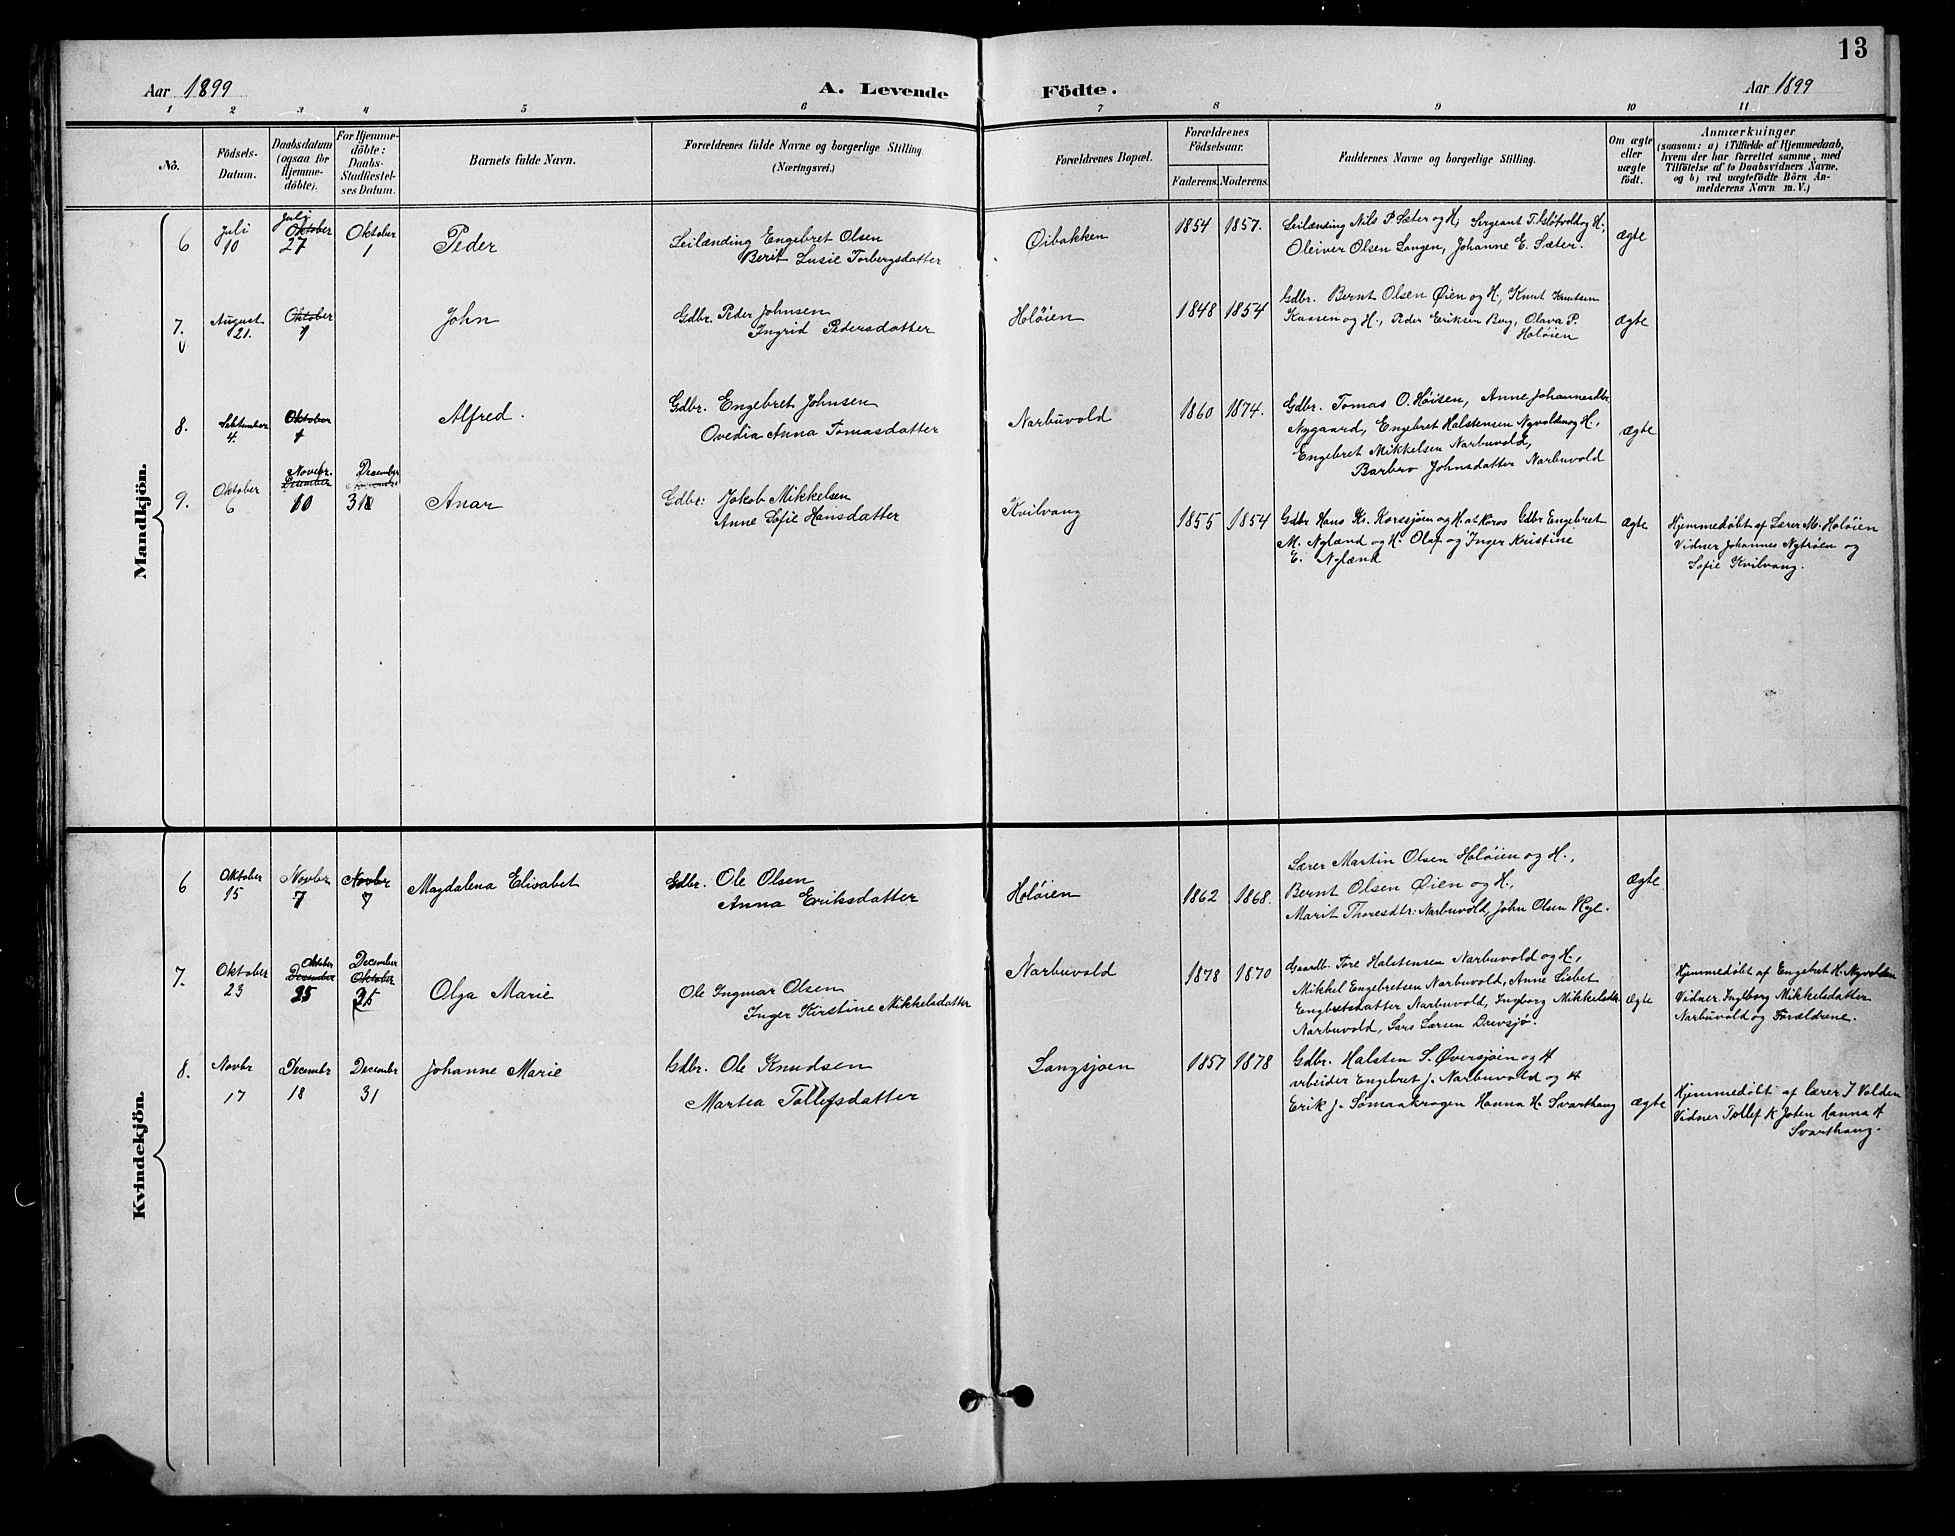 13
Aar 1899
A. Levende Födte.
Aar 1899
1 2 3 4 5 6 7 8 9 10 11
No.
Födsels-
Datum.
Daabsdatum
(ogsaa for
Hjemme-
döbte).
For Hjemme-
döbte:
Daabs-
Stadfæstel-
ses Datum.
Barnets fulde Navn.
Forældrenes fulde Navne og borgerlige Stilling
(Næringsvei.)
Forældrenes Bopæl.
Forældrenes
Födselsaar.
Faderens. Moderens.
Faddernes Navne og borgerlige Stilling.
Om ægte
eller
uægte
födt.
Anmærkninger
(saasom: a) i Tilfælde af Hjemmedaab,
hvem der har forrettet samme, med
Tilföielse af to Daabsvidners Navne,
og b) ved uægtefödte Börn An-
melderens Navn m. V.)
Mandkjön.
6
Juli
10
Juli
Oktober
27
Oktober
1
Peder
Leilænding Engebret Olsen
Berit Lusie Torbergsdatter
Øibakken
1854 1857.
Leilænding Nils P. Sæter og H, Sergeant T. Gløtvold og H.,
Oleiver Olsen Langen, Johanne E. Sæter.
ægte
7.
August
21.
Oktober
1
John
Gdbr. Peder Johnsen
Ingrid Pedersdatter
Holøien
1848 1854
Gdbr. Bernt Olsen Øien og H., Knut Knutsen
Kaasen og H., Peder Eriksen Berg, Olava P.
Holøien
ægte
8.
September
4.
Oktober
1
Alfred.
Gdbr. Engebret Johnsen
Ovedia Anna Tomasdatter
Narbuvold
1860 1874.
Gdbr. Tomas O. Høisen, Anne Johannesdtr
Nygaard, Engebret Halstensen Nyvolden og H.,
Engebret Mikkelsen Narbuvold,
Barbro Johnsdatter Narbuvold
ægte
9.
Oktober
6
Novebr.
Desember
10
Desember
31
Anar
Gdbr: Jakob Mikkelsen
Anne Sofie Hansdatter
Kvilvang
1855 1854
Gdbr Hans Kr. Korssjøen og H. at Røros Gdbr Engebret
M. Nyland og H. Olaf og Inger Kristine
E. Nylænd
ægte
Hjemmedøbt af Lærer M. Holøien
Vidner Johannes Nytrøen og
Sofie Kvilvang.
Kvindekjön.
6
Oktober
15
Novbr
7
Novbr
7
Magdalena Elisabet
Gdbr. Ole Olsen
Anna Eriksdatter
Holøien
1862 1868.
Lærer Martin Olsen Holøien og H.,
Bernt Olsen Øien og H.,
Marit Thoresdtr: Narbuvold, John Olsen Ryl.
Ægte
7.
Oktober
23
Oktober
Desember
25
December
Oktober
Olga Marie
Ole Ingmar Olsen
Inger Kirstine Mikkelsdatter
Narbuvold
1878 1870
Gaardb. Tore Halstensen Narbuvold og H.,
Mikkel Engebretsen Narbuvold, Anne Lisbet
Engbretsdatter Narbuvold, Ingborg Mikkelsdtr
Narbuvold, Lars Larsen Drevsjø.
ægte
Hjemmedøbt af Engebret H. Nyvolden
Vidner Ingborg Mikkelsdatter
Narbuvold og Forældrene.
8.
Novbr
17
Decembr
18
December
31
Johanne Marie
Gdbr. Ole Knudsen
Martea Tollefsdatter
Langsjøen
1857 1878
Gdbr. Halsten S. Øversjøen og H
arbeider Engebret J. Narbuvold og H
Erik J. Sømaakrogen Hanna H. Svarthaug
ægte
Hjemmedøbt af lærer I Volden
Vidner Tollef K Joten Hanna H
Svarthaug.